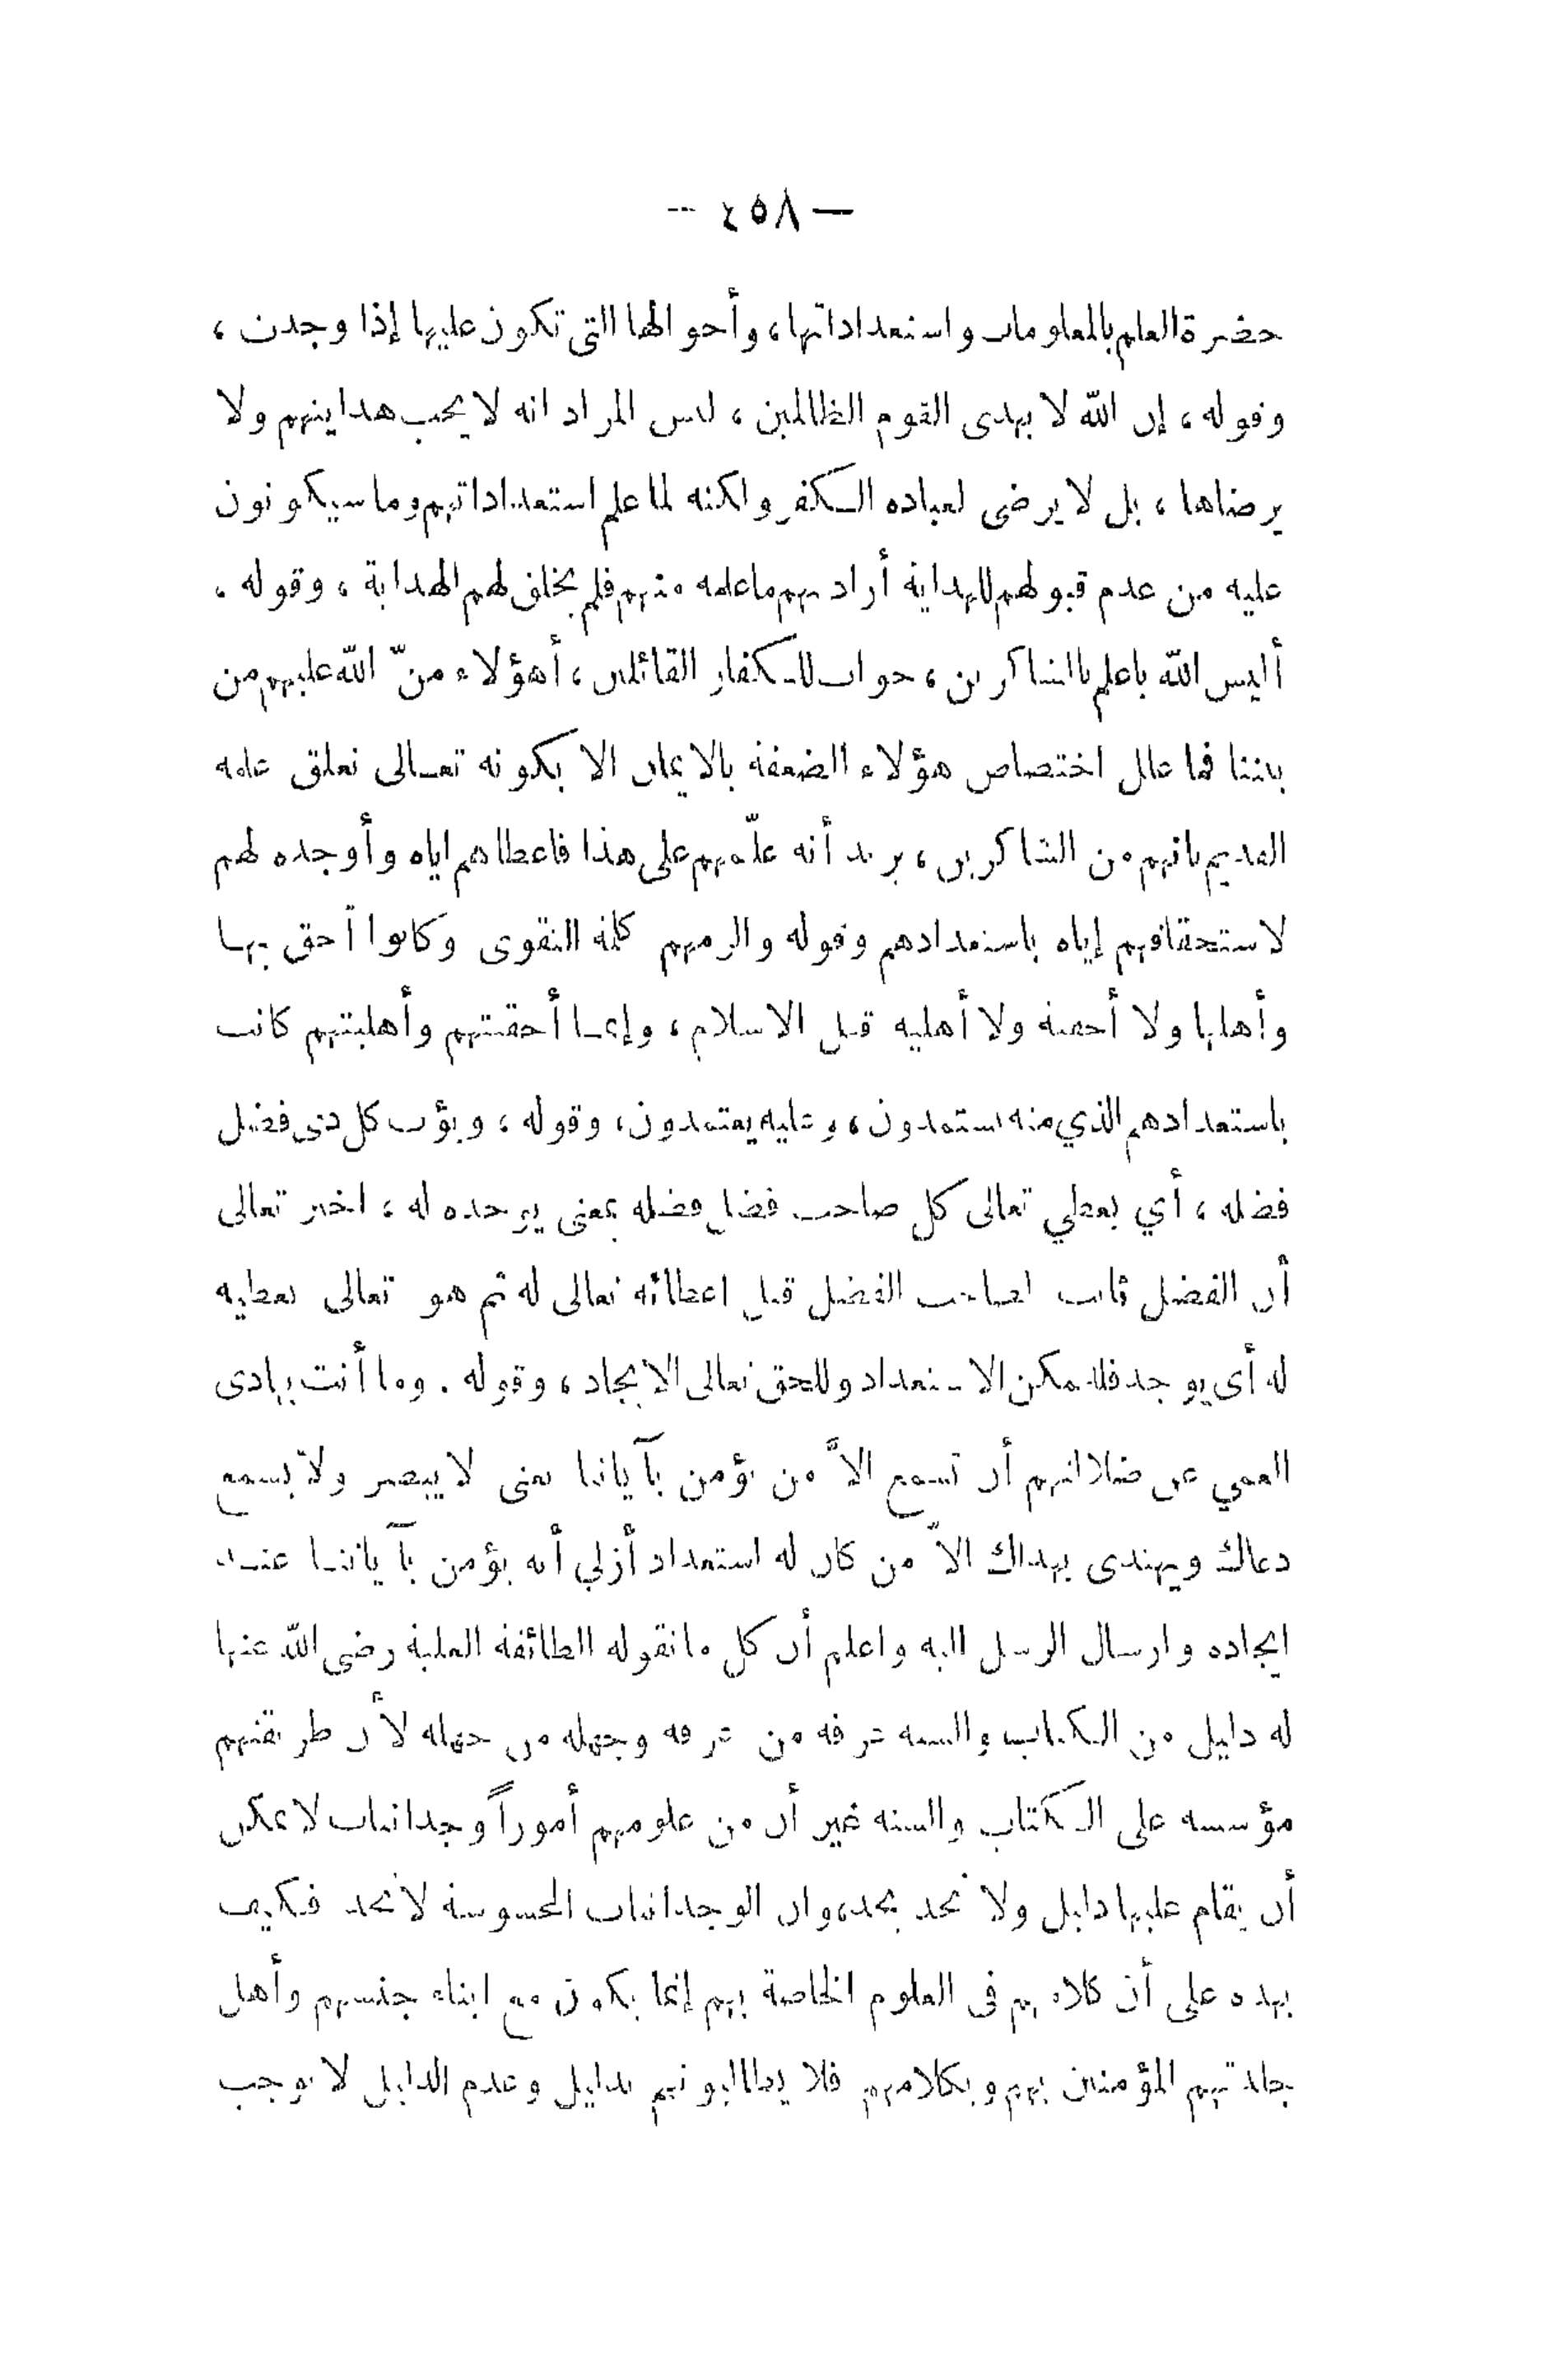 — ٤٥٨ —
حضرة العلم بالمعلومات واستعداداتها، وأحوالها التي تكون عليها إذا وجدت ،
وقوله ، إن الله لا يهدى القوم الظالمين ، ليس المراد انه لا يحب هدايتهم ولا
يرضاها ، بل لا يرضى لعباده الكفر ولكنه لما علم استعداداتهم وما سيكونون
عليه من عدم قبولهم للهداية أراد بهم ما علمه منهم فلم يخلق لهم الهداية ، وقوله .
أليس الله باعلم بالشاكرين ، جواب للكفار القائلين ، أهؤلاء منّ الله عليهم من
بيننا فما علل اختصاص هؤلاء الضعفة بالايمان الا بكونه تعالى تعلق علمه
القديم بانهم من الشاكرين ، يريد أنه علّمهم على هذا فاعطاهم اياه وأوجده لهم
لاستحقاقهم إياه باستعدادهم وقوله والزمهم كلمة التقوى وكانوا أحق بها
وأهلها ولا أحقية ولا أهلية قبل الاسلام ، وإنما أحقيتهم وأهليتهم كانت
باستعدادهم الذي منه يستمدون ، وعليه يعتمدون ، وقوله ، ويؤت كل ذى فضل
فضله ، أي يعطي تعالى كل صاحب فضل فضله بمعنى يوجده له ، اخبر تعالى
أن الفضل ثابت لصاحب الفضل قبل اعطائه تعالى له ثم هو تعالى يعطيه
له أى يوجد فللممكن الاستعداد وللحق تعالى الايجاد ، وقوله . وما أنت بهادى
العمي عن ضلالتهم أن تسمع الاّ من يؤمن بآياتنا يعنى لا يبصر ولا يسمع
دعاك ويهتدى بهداك الاّ من كان له استعداد أزلي أنه يؤمن بآياتنا عند
ايجاده وارسال الرسل اليه واعلم أن كل ما تقوله الطائفة العلية رضى الله عنها
له دليل من الكتاب والسنه عرفه من عرفه وجهله من جهله لأن طريقتهم
مؤسسه على الكتاب والسنه غير أن من علومهم أموراً وجدانيات لا يمكن
أن يقام عليها دليل ولا تحد بحد، وان الوجدانيات المحسوسة لا تحد فكيف
بهذه على أن كلامهم فى العلوم الخاصة بهم إنما يكون مع ابناء جنسهم وأهل
جلدتهم المؤمنين بهم وبكلامهم فلا يطالبونهم بدليل وعدم الدليل لا يوجب